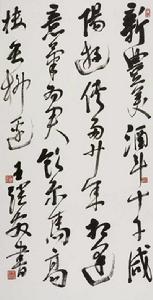 新豐美酒斗十千咸
陽遊俠多少年相逢
意氣為君飲系馬高
樓垂柳邊 王書